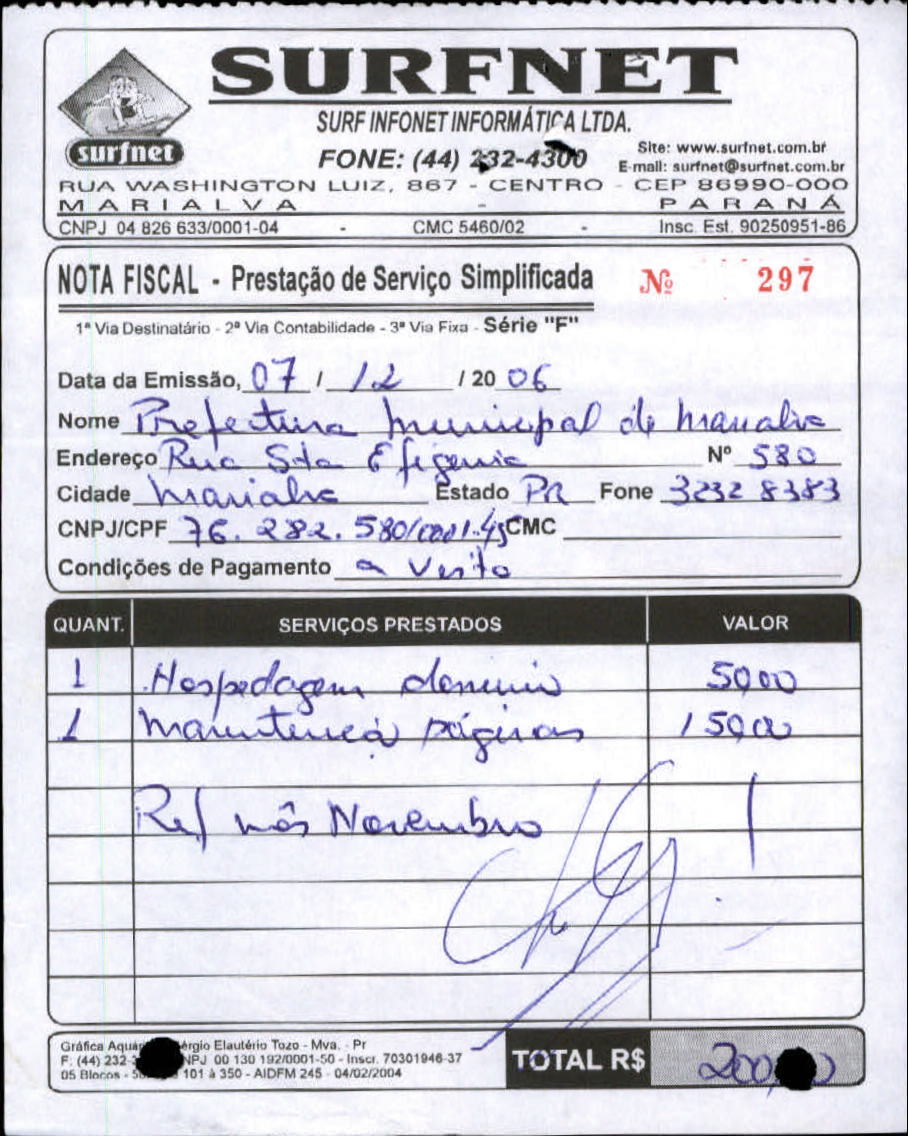 SURFNET
surfnet
SURF INFONET INFORMÁTICA LTDA.
FONE: (44) 232-4300
Site: www.surfnet.com.br
E-mail: surfnet@surfnet.com.br
RUA WASHINGTON LUIZ, 867 - CENTRO - CEP 86990-000
MARIALVA - PARANÁ
CNPJ 04 826 633/0001-04 - CMC 5460/02 - Insc. Est. 90250951-86
NOTA FISCAL - Prestação de Serviço Simplificada Nº 297
1ª Via Destinatário - 2ª Via Contabilidade - 3ª Via Fixa - Série "F"
Data da Emissão, 07 / 12 / 20 06
Nome Prefeitura Municipal de Marialva
Endereço Rua Sta Efigenia Nº 580
Cidade Marialva Estado PR Fone 3232 8383
CNPJ/CPF 76.282.580/0001.45 CMC
Condições de Pagamento a Vista
QUANT. SERVIÇOS PRESTADOS VALOR
1 Hospedagem dominio 50,00
1 Manutenção páginas 150,00
Ref mês Novembro
Gráfica Aquár érgio Elautério Tozo - Mva. - Pr
F: (44) 232- NPJ 00 130 192/0001-50 - Inscr. 70301946-37
05 Blocos - 101 à 350 - AIDFM 245 - 04/02/2004
TOTAL R$ 200,00